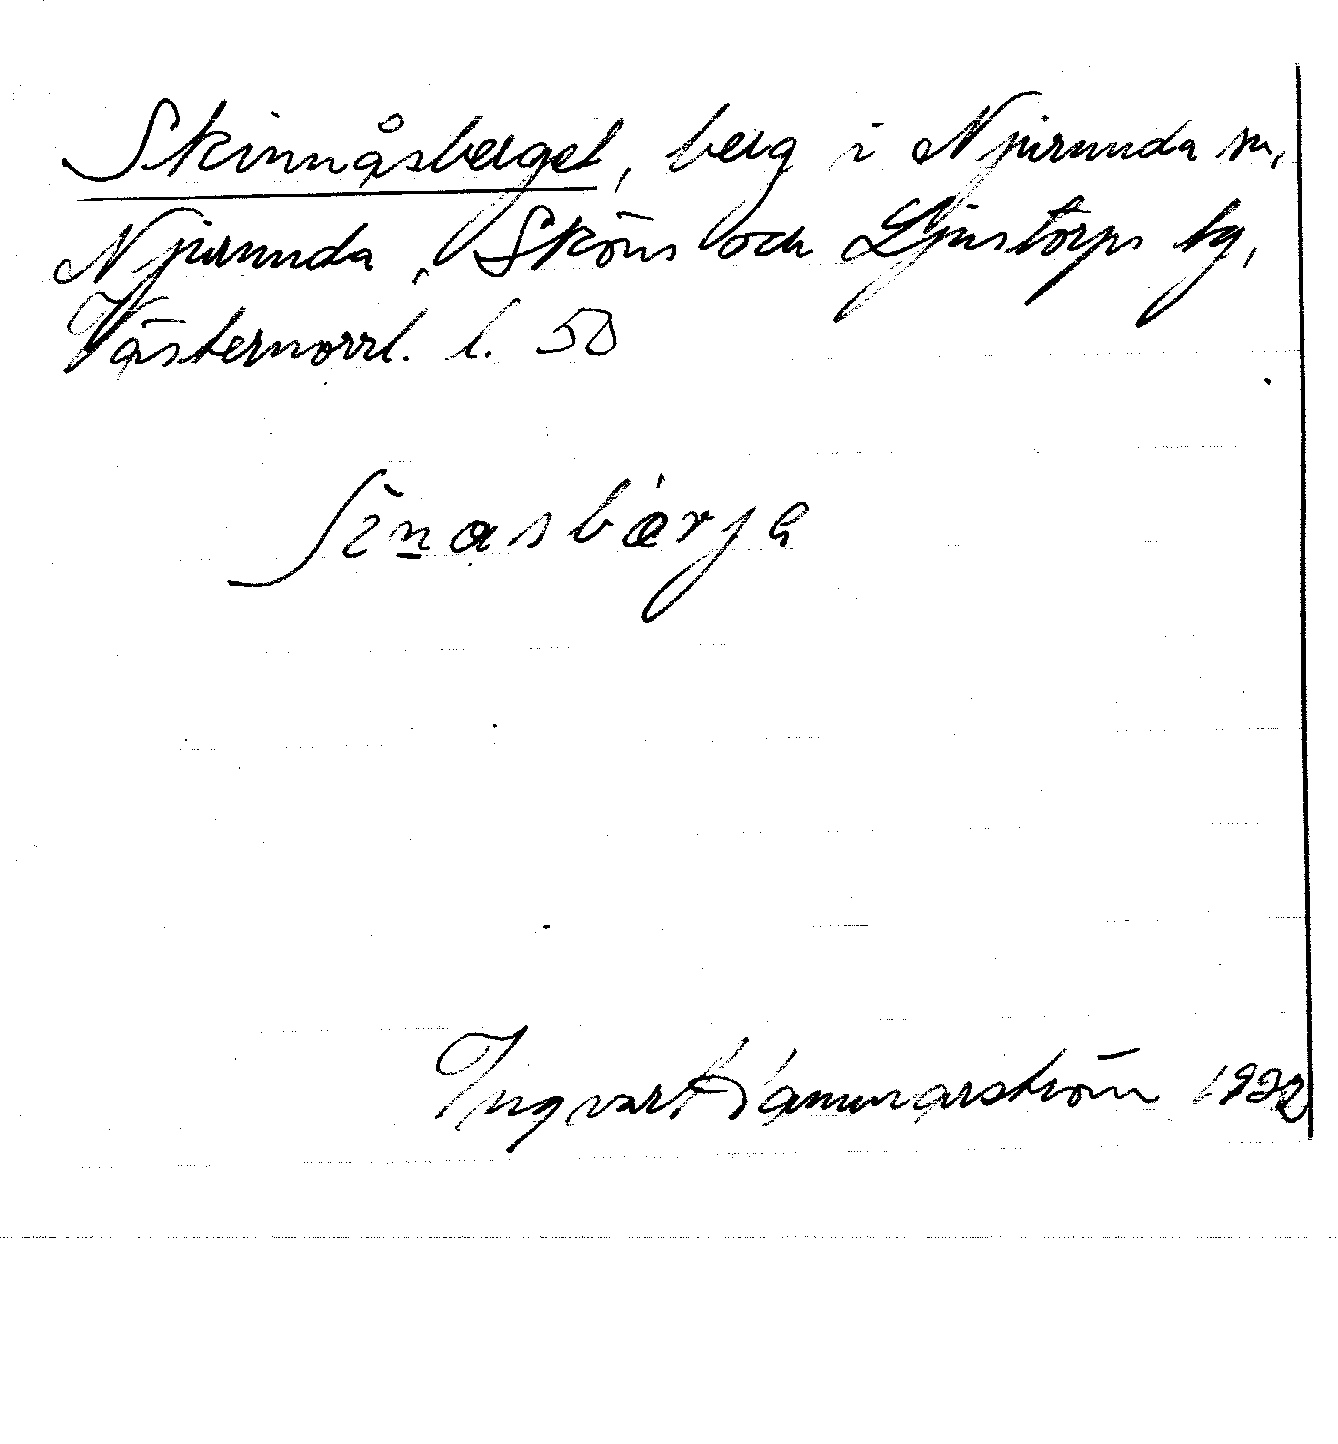 Skinnåsberget, berg i Njurunda sn,
Njurunda, Sköns och Ljustorps tg,
Västernorrl. l. 50
ʃìn̲asbárjɐ
Ingvar Hammarström 1932